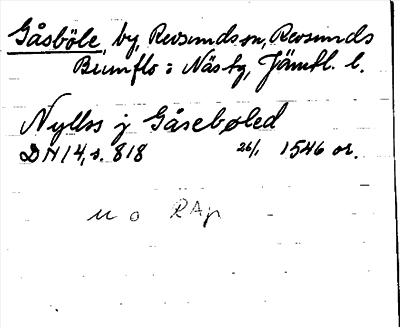 Gåsböle, by, Revsunds sn, Revsunds
Brunflo o Näs tg, Jämtl. l.
Nyllss j Gåsebøled
DN 14, s. 818 26/1 1546 or.